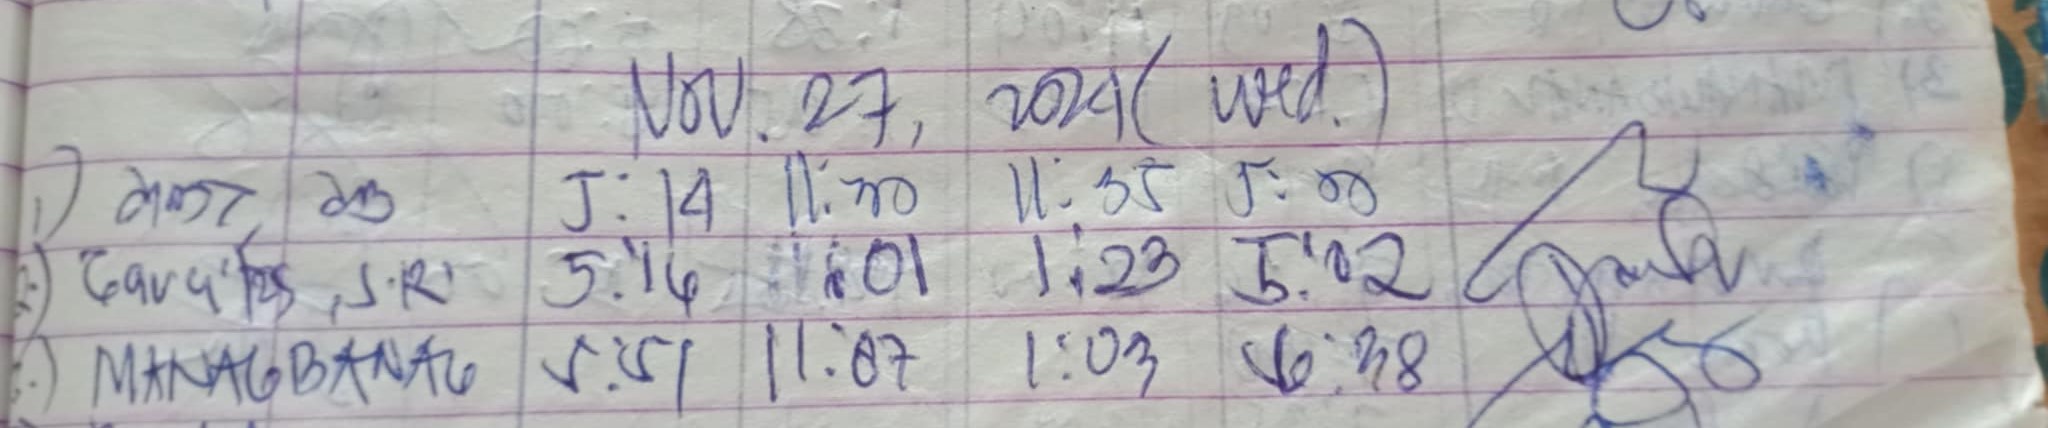 Nov. 27, 2024 (Wed.)
1) 5:14 11:30 11:35 5:00
2) J.R. 5:16 1:01 1:23 5:02
3.) MANAGBANAG 5:51 11:07 1:03 6:38